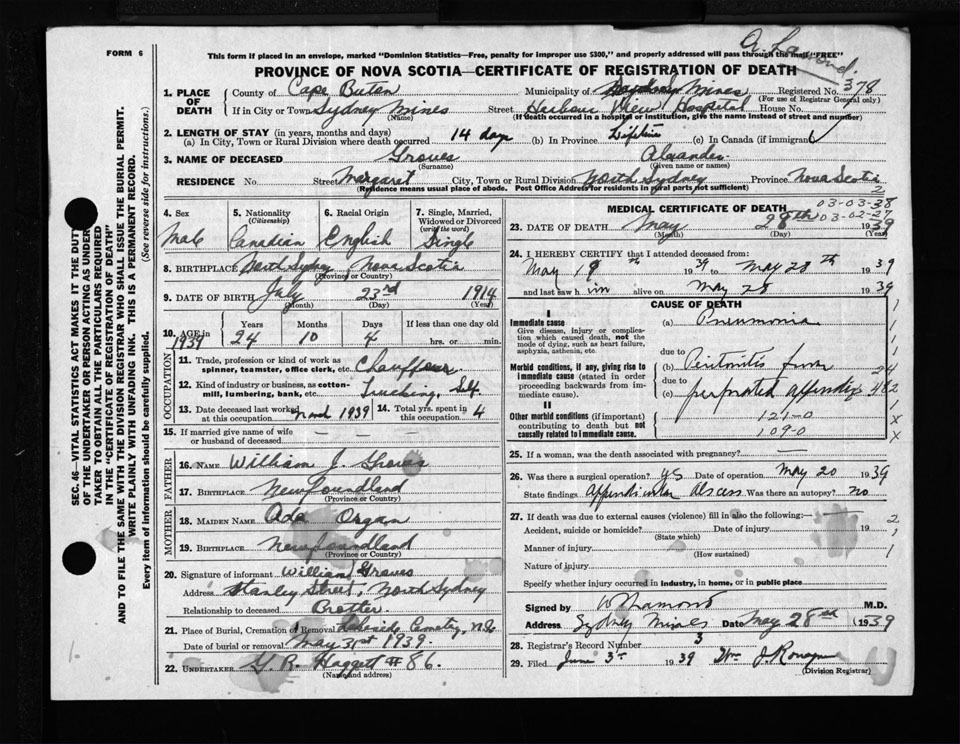 FORM 6
This form if placed in an envelope, marked "Dominion Statistics—Free, penalty for improper use $300," and properly addressed will pass through the mail "FREE"
PROVINCE OF NOVA SCOTIA—CERTIFICATE OF REGISTRATION OF DEATH
1. PLACE OF DEATH
County of Cape Breton Municipality of Sydney Mines Registered No. 378
(For use of Registrar General only)
If in City or Town Sydney Mines Street Harbour View Hospital House No.
(Name) (If death occurred in a hospital or institution, give the name instead of street and number)
2. LENGTH OF STAY (in years, months and days)
(a) In City, Town or Rural Division where death occurred 14 days (b) In Province Lifetime (c) In Canada (if immigrant)
3. NAME OF DECEASED Groves Alexander
(Surname) (Given name or names)
RESIDENCE No Street Margaret City, Town or Rural Division North Sydney Province Nova Scotia
(Residence means usual place of abode. Post Office Address for residents in rural parts not sufficient)
2
4. Sex
Male
5. Nationality
(Citizenship)
Canadian
6. Racial Origin
English
7. Single, Married, Widowed or Divorced
(write the word)
Single
8. BIRTHPLACE North Sydney, Nova Scotia
(Province or Country)
9. DATE OF BIRTH July 23rd 1914
(Month) (Day) (Year)
10. AGE in 1939
Years Months Days If less than one day old
24 10 4 hrs. or min.
OCCUPATION
11. Trade, profession or kind of work as spinner, teamster, office clerk, etc. Chauffeur
12. Kind of industry or business, as cotton-mill, lumbering, bank, etc. Trucking, Self.
13. Date deceased last worked at this occupation March 1939 14. Total yrs. spent in this occupation 4
15. If married give name of wife or husband of deceased — — —
FATHER
16. NAME William J. Groves
17. BIRTHPLACE Newfoundland
(Province or Country)
MOTHER
18. MAIDEN NAME Ada Organ
19. BIRTHPLACE Newfoundland
(Province or Country)
20. Signature of informant William Groves
Address Stanley Street, North Sydney
Relationship to deceased Brother
21. Place of Burial, Cremation or Removal Lakeside Cemetery, N.S.
Date of burial or removal May 31st 1939
22. UNDERTAKER G. R. Haggett # 86.
(Name and address)
MEDICAL CERTIFICATE OF DEATH
03-03-38
03-02-27
23. DATE OF DEATH May 28th 1939
(Month) (Day) (Year)
24. I HEREBY CERTIFY that I attended deceased from:
May 19th 1939 to May 28th 1939
and last saw him alive on May 28 1939
CAUSE OF DEATH
I
Immediate cause
Give disease, injury or complication which caused death, not the mode of dying, such as heart failure, asphyxia, asthenia, etc.
(a) Pneumonia
due to
Morbid conditions, if any, giving rise to immediate cause (stated in order proceeding backwards from immediate cause).
(b) Peritonitis from
due to
(c) perforated appendix
II
Other morbid conditions (if important) contributing to death but not causally related to immediate cause.
121-0
109-0
25. If a woman, was the death associated with pregnancy? —
26. Was there a surgical operation? yes Date of operation May 20 1939
State findings Appendicular Abscess Was there an autopsy? no
27. If death was due to external causes (violence) fill in also the following:—
Accident, suicide or homicide? Date of injury 19
(State which)
Manner of injury
(How sustained)
Nature of injury
Specify whether injury occurred in industry, in home, or in public place
Signed by M.D.
Address Sydney Mines Date May 28th 1939
28. Registrar's Record Number 3
29. Filed June 3rd 1939 Wm J.
(Division Registrar)
SEC. 46—VITAL STATISTICS ACT MAKES IT THE DUTY
OF THE UNDERTAKER OR PERSON ACTING AS UNDER-
TAKER TO OBTAIN ALL THE PARTICULARS REQUIRED
IN THE "CERTIFICATE OF REGISTRATION OF DEATH"
AND TO FILE THE SAME WITH THE DIVISION REGISTRAR WHO SHALL ISSUE THE BURIAL PERMIT.
WRITE PLAINLY WITH UNFADING INK. THIS IS A PERMANENT RECORD.
Every item of information should be carefully supplied. (See reverse side for instructions.)